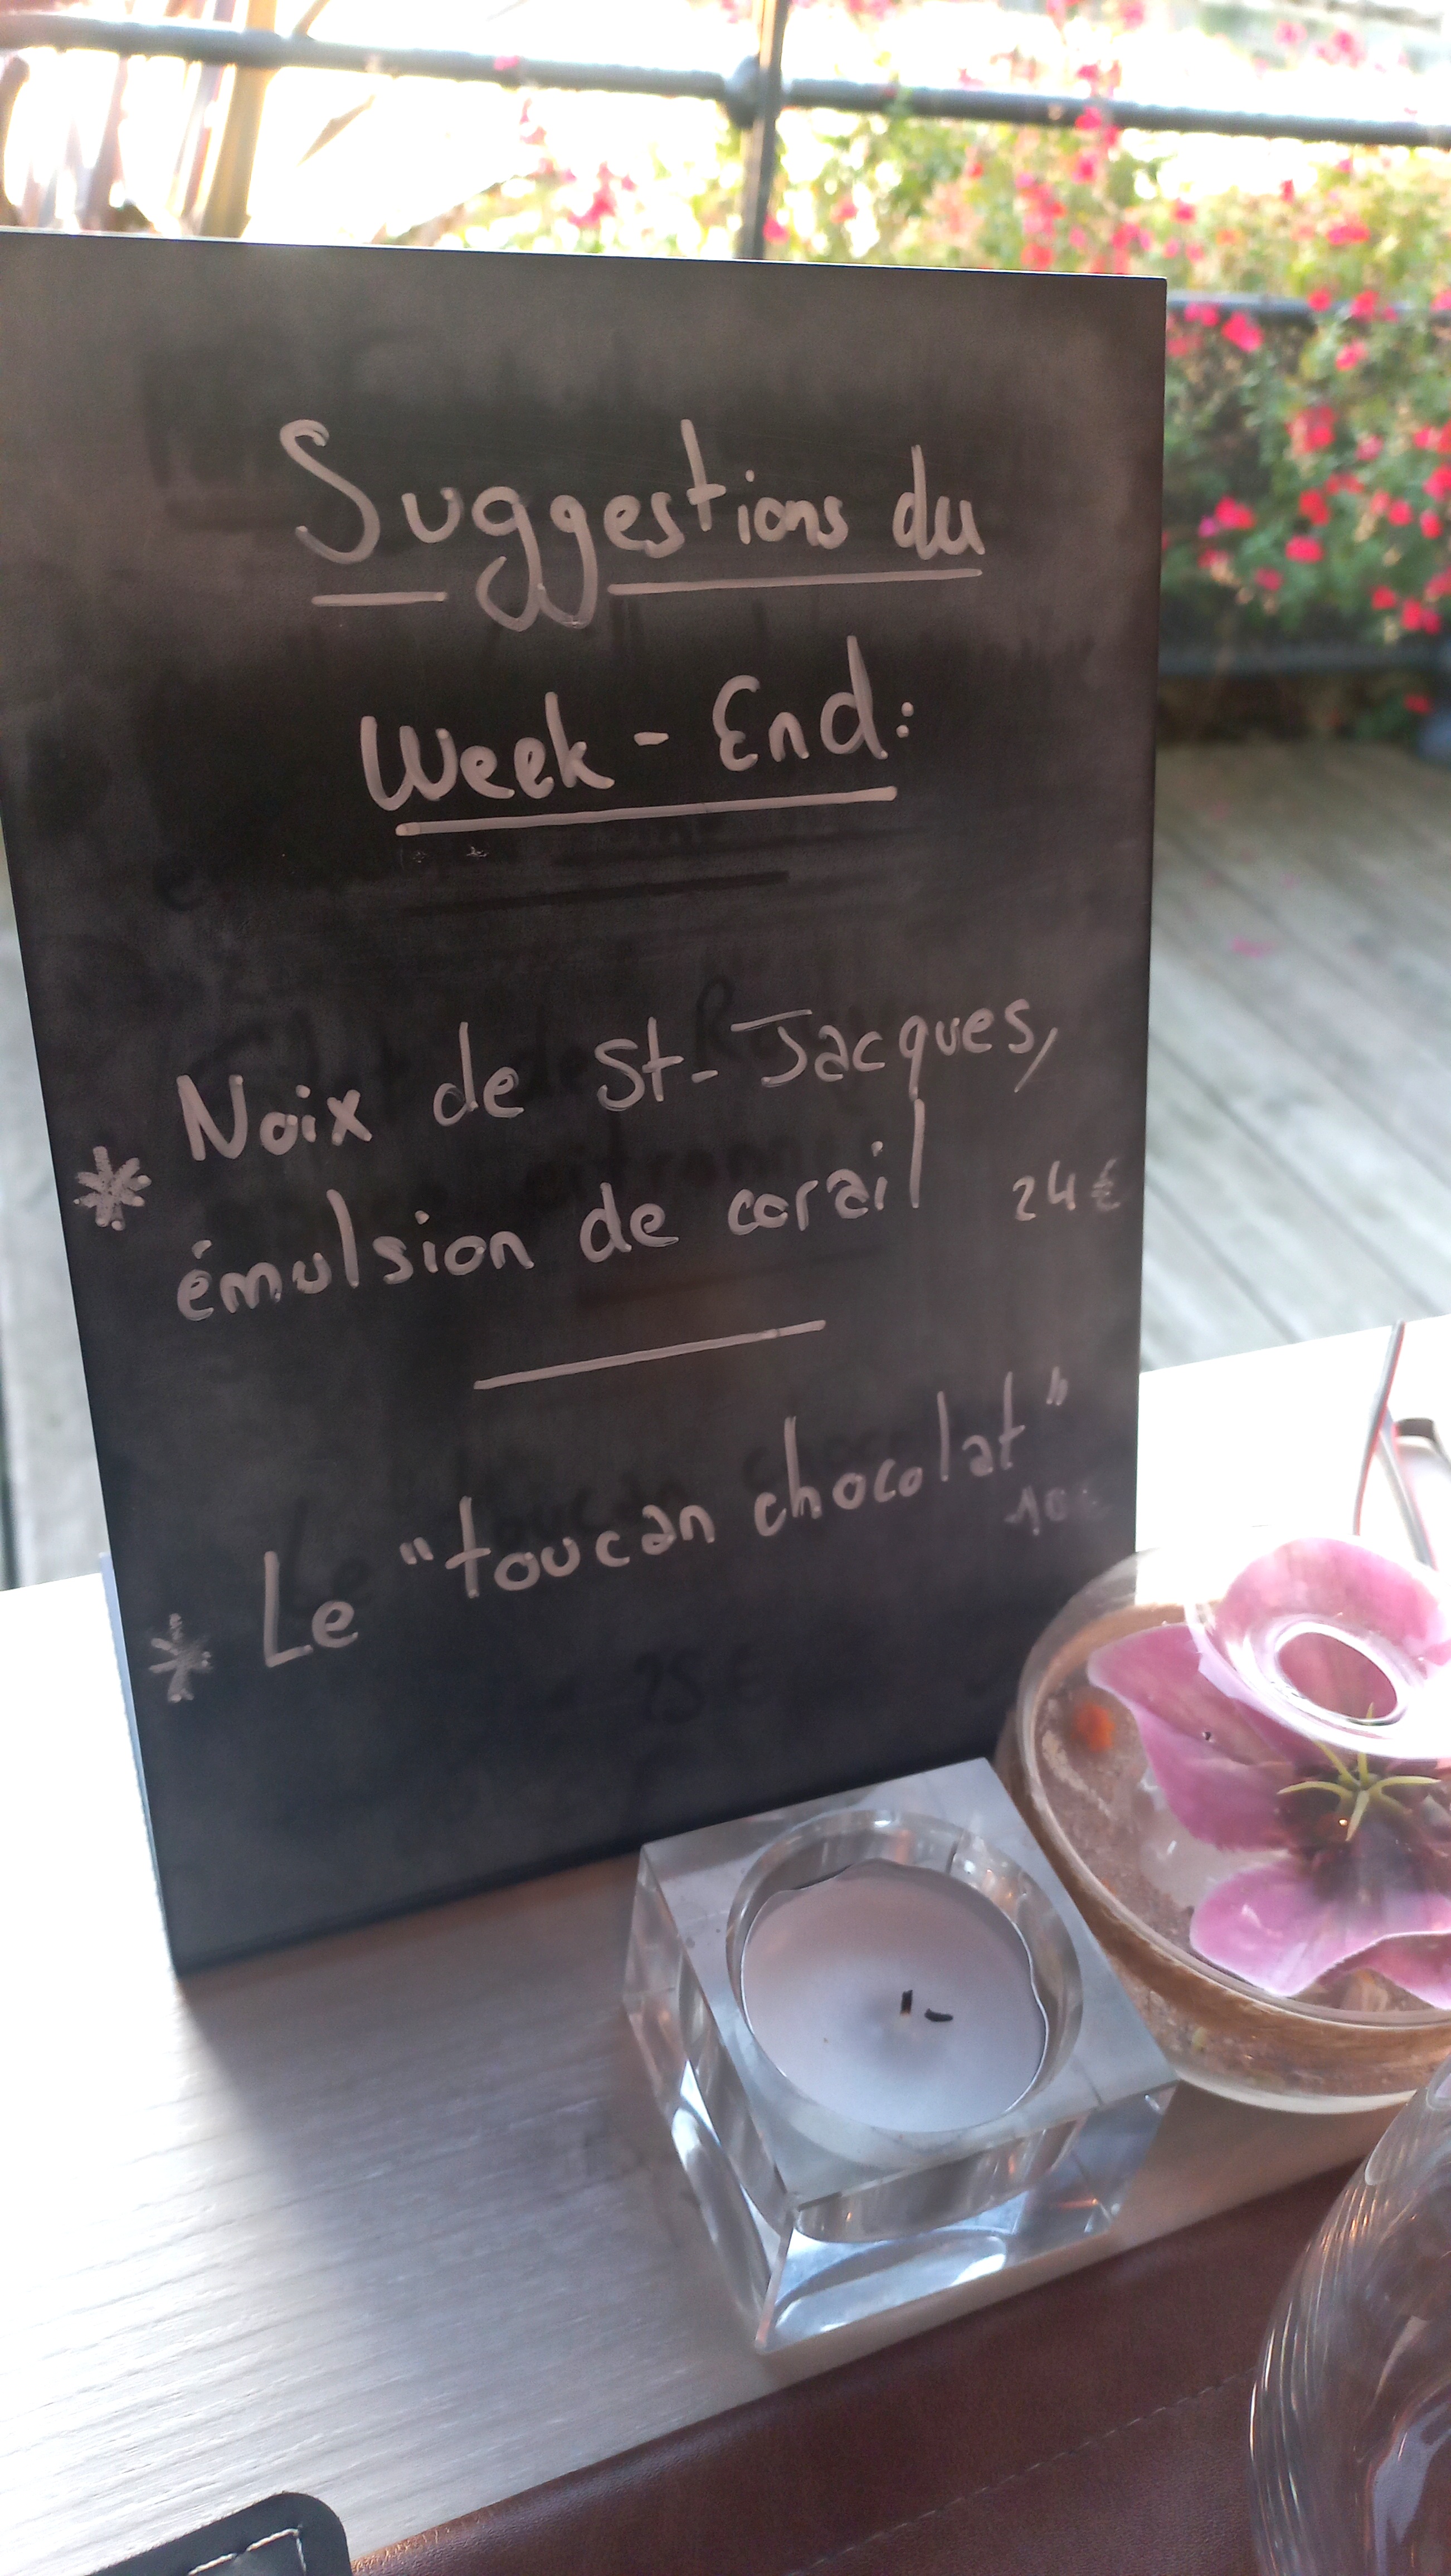 Suggestions du
Week-End:
* Noix de St-Jacques,
émulsion de corail 24€
* Le "toucan chocolat"
10€